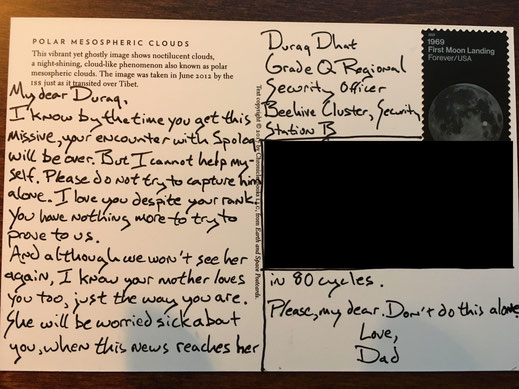 POLAR MESOSPHERIC CLOUDS
This vibrant yet ghostly image shows noctilucent clouds,
a night-shining, cloud-like phenomenon also known as polar
mesospheric clouds. The image was taken in June 2012 by the
ISS just as it transited over Tibet.
My dear Duraq,
I know by the time you get this
missive, your encounter with Spolog
will be over. But I cannot help my-
self. Please do not try to capture him
alone. I love you despite your rank.
You have nothing more to try to
prove to us.
And although we won't see her
again, I know your mother loves
you too, just the way you are.
She will be worried sick about
you, when this news reaches her
Text copyright © by Chronicle Books LLC, from Earth and Space Postcards.
Duraq Dhat
Grade Q Regional
Security Officer
Beehive Cluster, Security
Station B
1969
First Moon Landing
Forever/USA
in 80 cycles.
Please, my dear. Don't do this alone.
Love,
Dad